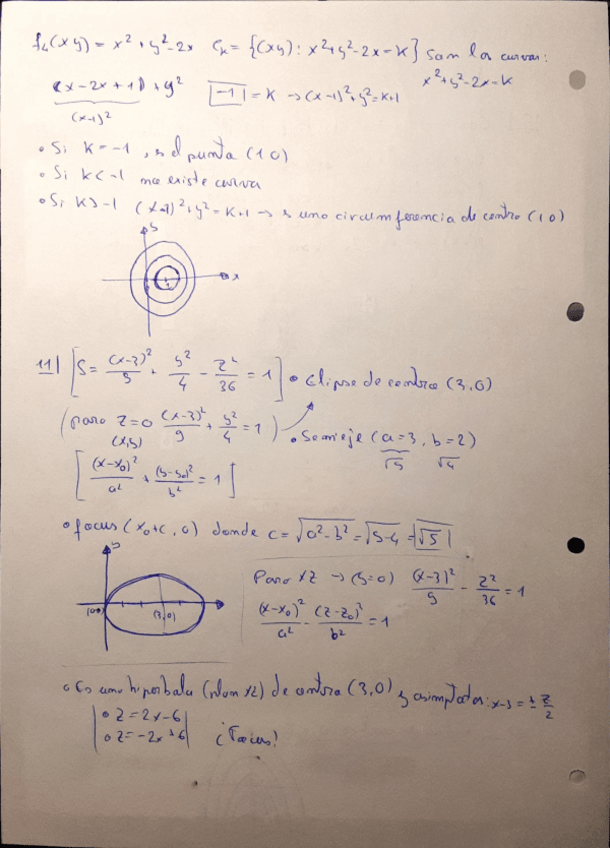 f₄(xy) = x² + y² - 2x   Cₖ = {(xy) : x² + y² - 2x = k} son las curvas:
x² + y² - 2x = k
(x - 2x + 1) + y²   [-1] = k → (x-1)² + y² = k+1
(x-1)²
• Si k = -1, es el punto (1 0)
• Si k < -1 no existe curva
• Si k > -1 (x-1)² + y² = k+1 → es una circunferencia de centro (1 0)
y
x
11) [S = (x-3)²/9 + y²/4 - z²/36 = 1] • Elipse de centro (3,0)
(para z=0 (x-3)²/9 + y²/4 = 1) • Semieje (a=3, b=2)
(x,y)   √9   √4
[(x-x₀)²/a² + (y-y₀)²/b² = 1]
• focus (x₀+c, 0) donde c = √a²-b² = √9-4 = √5
y
(00)   (3,0)
Para xz → (y=0) (x-3)²/9 - z²/36 = 1
(x-x₀)²/a² - (z-z₀)²/b² = 1
• Es una hiperbola (plan xz) de centro (3,0) y asimptotas: x-3 = ± z/2
• z = 2x-6
• z = -2x+6   ¿Focus?